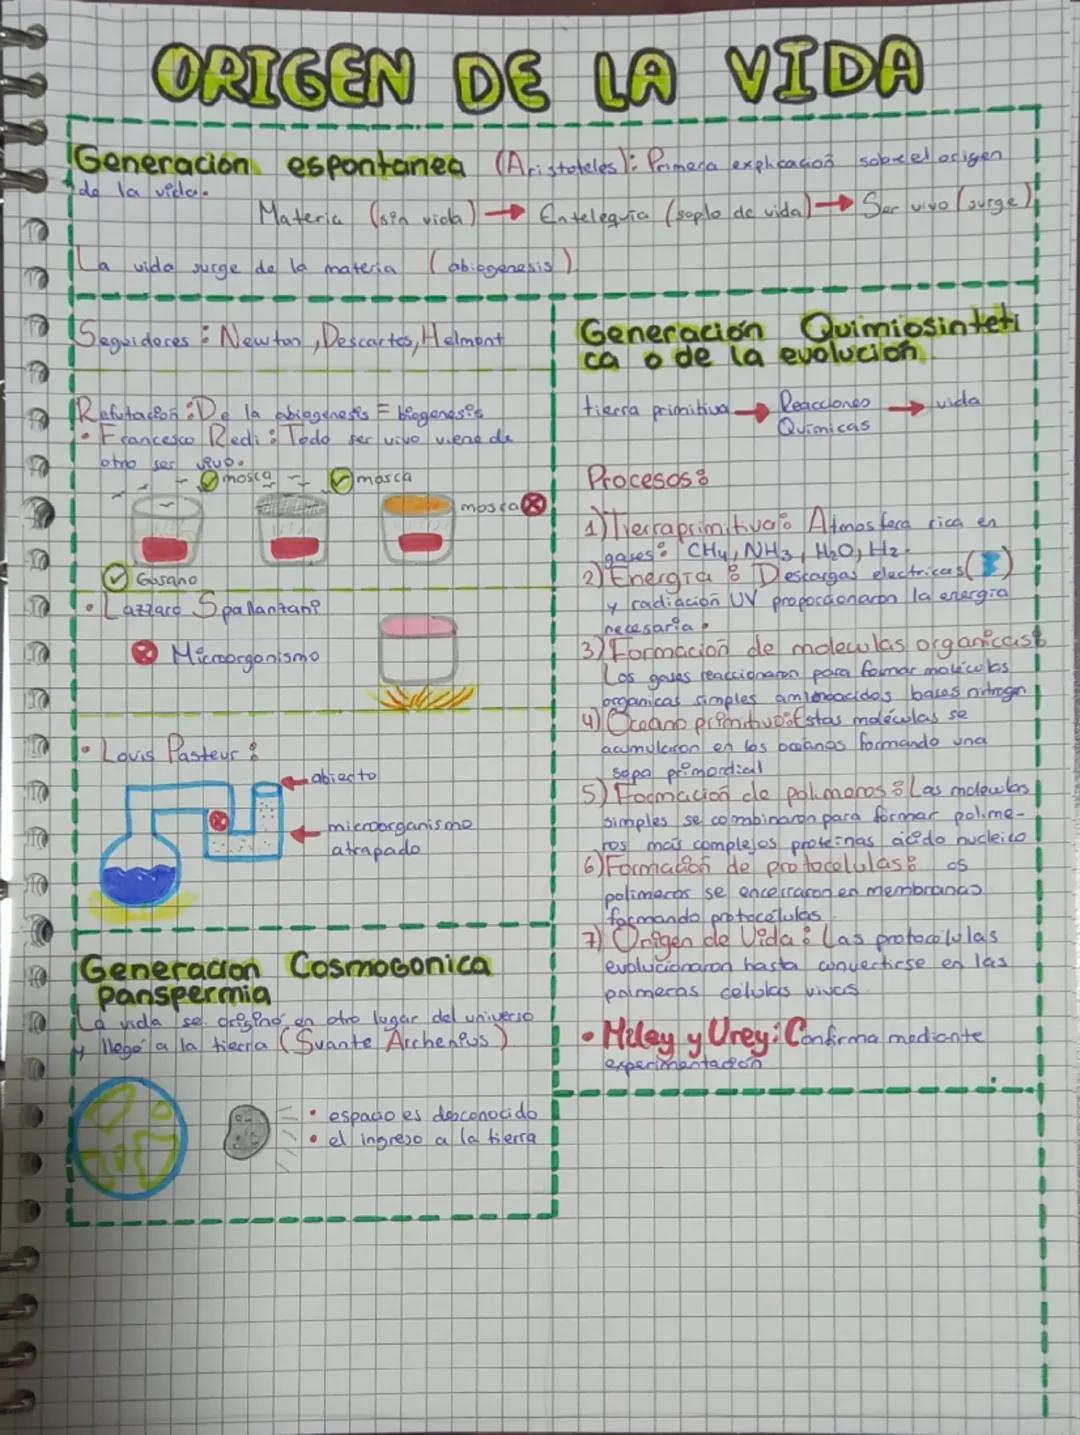 ORIGEN DE LA VIDA
Generación espontanea (Aristoteles): Primera explicación sobre el origen
de la vida.
Materia (sin vida) → Entelequia (soplo de vida) → Ser vivo (surge)
La vida surge de la materia (abiogenesis).
Seguidores: Newton, Descartes, Helmont
Refutación: De la abiogenesis = biogenesis
• Francesco Redi: Todo ser vivo viene de
otro ser vivo.
mosca
mosca
mosca
Gusano
• Lazzaro Spallanzani
Microorganismo
• Louis Pasteur:
abierto
microorganismo
atrapado
Generacion Cosmogonica
panspermia
La vida se originó en otro lugar del universo
y llegó a la tierra (Svante Arrhenius)
• espacio es desconocido
• el ingreso a la tierra
Generación Quimiosinteti
ca o de la evolución
tierra primitiva → Reacciones → vida
Químicas
Procesos:
1) Tierra primitiva: Atmosfera rica en
gases: CH4, NH3, H2O, H2.
2) Energía: Descargas electricas ( )
y radiación UV proporcionaron la energía
necesaria.
3) Formación de moleculas organicas:
Los gases reaccionaron para formar moléculas
organicas simples aminoacidos bases nitrogen
4) Oceano primitivo: Estas moléculas se
acumularon en los oceanos formando una
sopa primordial
5) Formación de polimeros: Las moleculas
simples se combinaron para formar polime-
ros más complejos proteinas acido nucleico
6) Formación de protocelulas: os
polimeros se encerraron en membranas
formando protocélulas
7) Origen de Vida: Las protocélulas
evolucionaron hasta convertirse en las
primeras células vivas
• Miley y Urey: Confirma mediante
experimentación